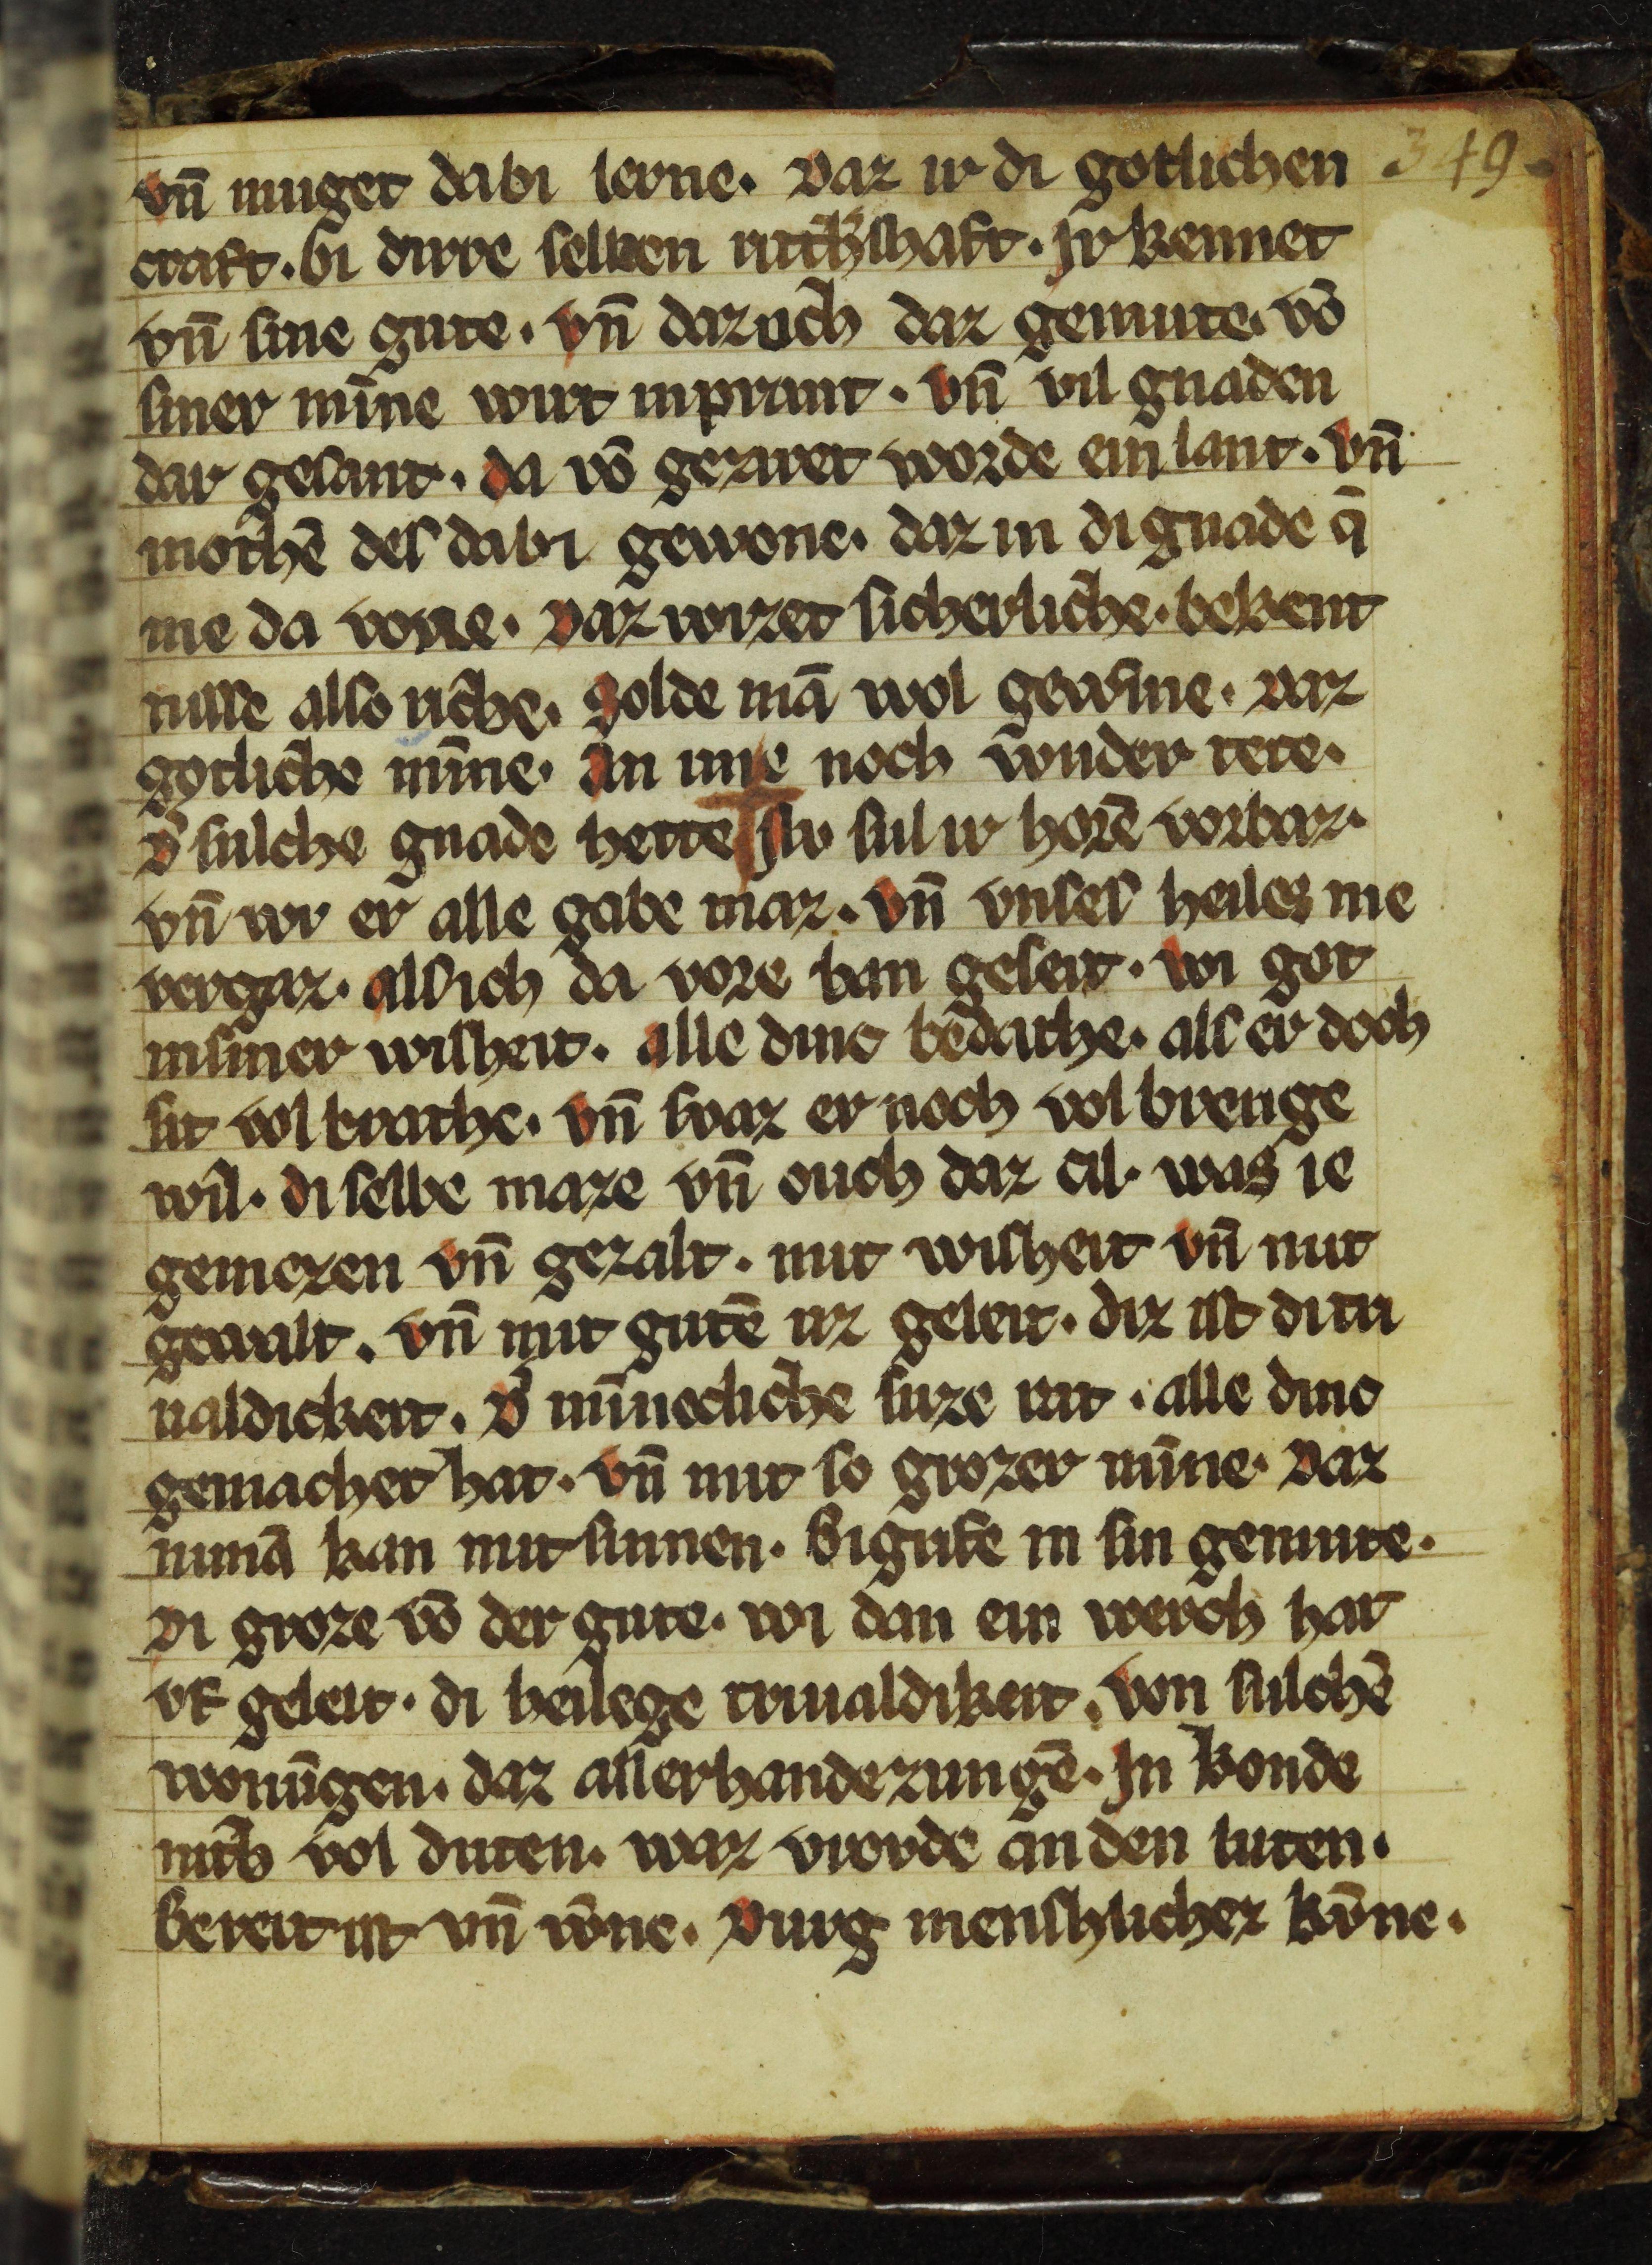 349
vn̄ muget dabi lerne. Daz ir di gotlichen
craft. bi dirre selben ritth'shaft. Ir kennet
vn̄ sine gute. vn̄ daz uch daz gemute. vō
siner mīne wirt inprant. vn̄ vil gnaden
dar gesant. da vō gezirret worde ein lant. vn̄
mothē des dabi gewone. daz in di gnade q̄
me da vone. Daz wizzet sicherliche. bekent
nisse also riche. Solde mā wol gewīne. Daz
gotliche mīne. An ime noch wnder tete.
D' sulche gnade hette Nv sul ir horē vorbaz.
vn̄ wi er alle gabe maz. vn̄ vnses heiles nie
vergaz. als ich da vore han geseit. wi got
in siner wisheit. alle dinc bedathe. als er doch
sit vol brathe. vn̄ swaz er noch vol brenge
wil. di selbe maze vn̄ ouch daz cil. was ie
gemezen vn̄ gezalt. mit wisheit vn̄ mit
gewalt. vn̄ mit gutē uz geleit. diz ist di tri
ualdickeit. D' mīnecliche suze rat. alle dinc
gemachet hat. vn̄ mit so grozer mīne. Daz
nimā kan mit sinnen. Bigrife in sin gemute.
Di groze vō der gute. wi dan ein werch hat
vf geleit. di heilege triualdikeit. von sulchē
wonūgen. daz allerhande zungē. In konde
nith vol duten. waz vrovde an den luten.
bereit ist vn̄ wne. Durg menshlichez kvne.